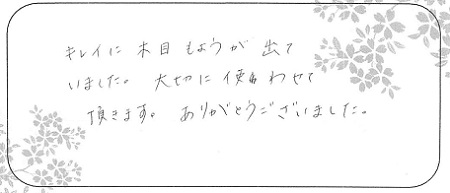 キレイに 木目もようが 出て
いました。 大切に 使わせて
頂きます。 ありがとうございました。